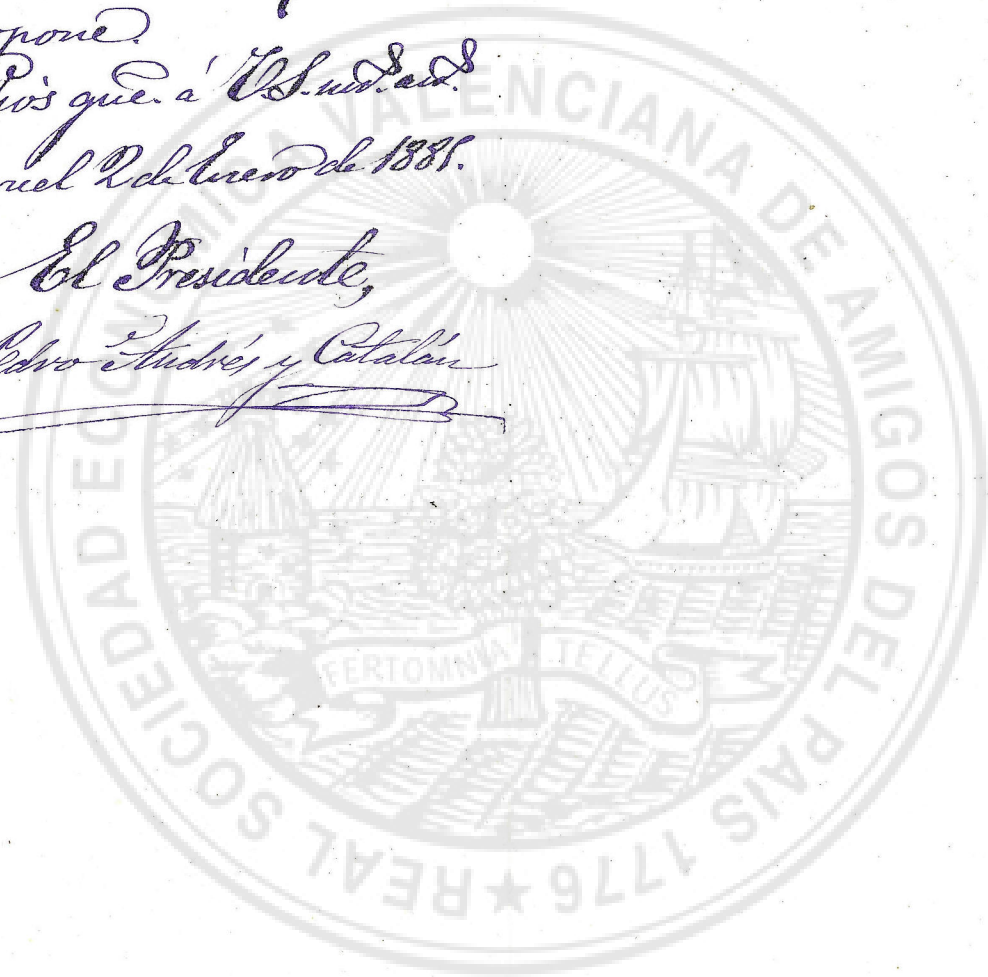 pone.
que. á V.S. m.s a.s
2 de Enero de 1881.
El Presidente,
Pedro Andrés y Catalán
REAL SOCIEDAD ECONOMICA VALENCIANA DE AMIGOS DEL PAIS 1776 ★
FERTOMNIA TELLUS